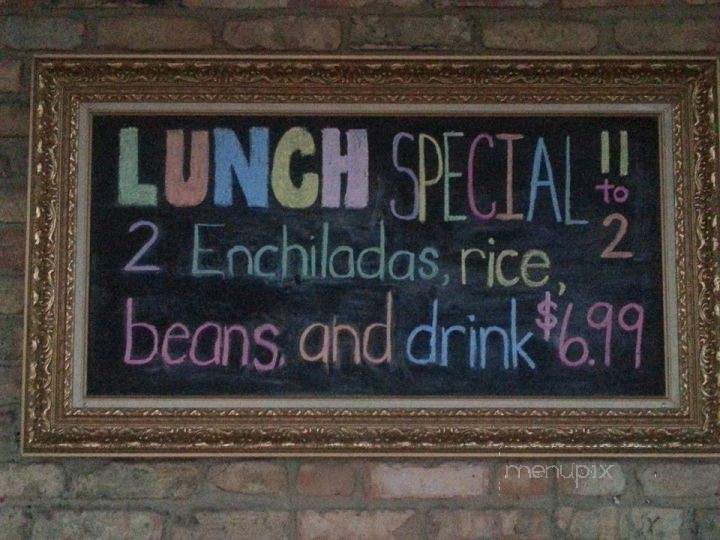 LUNCH SPECIAL 11
to
2 Enchiladas, rice, 2
beans, and drink $6.99
menupix